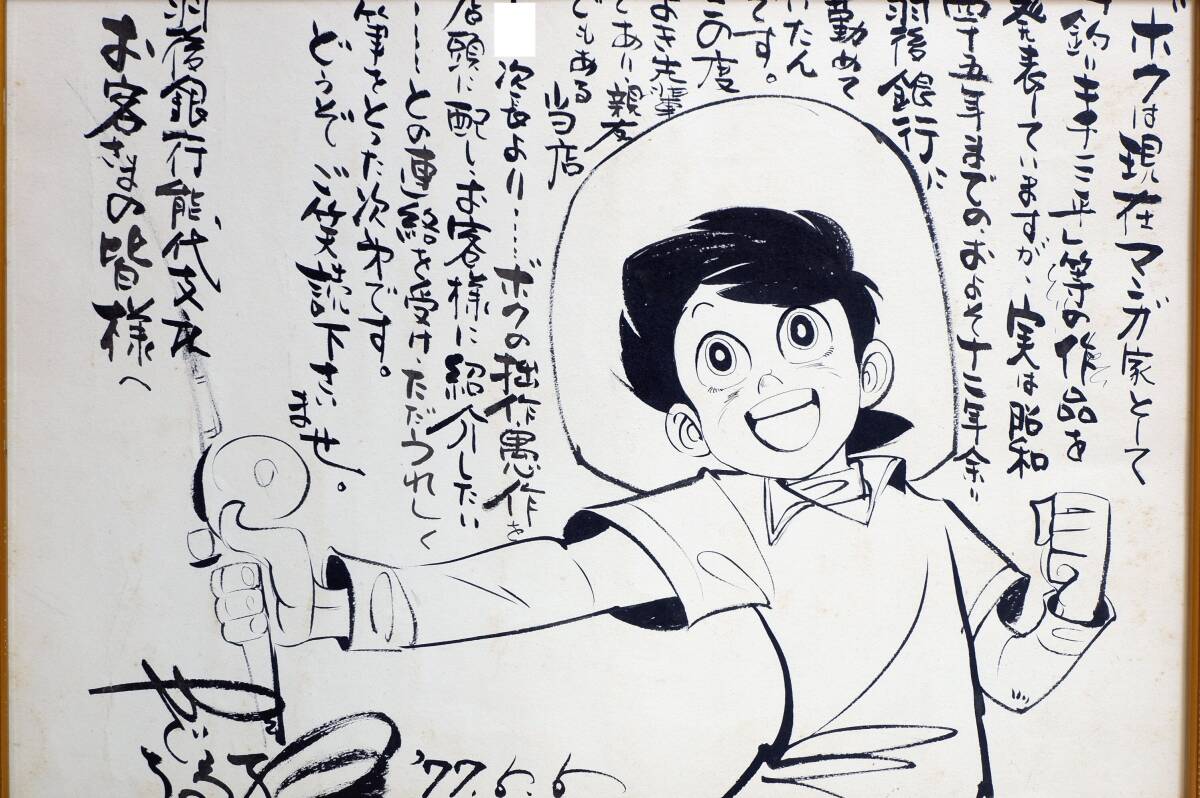 ボクは現在マンガ家として
釣りキチ三平」等の作品を
発表していますが、実は昭和
四十五年までの、およそ十二年余い
羽後銀行に
勤めて
いたん
です。
この度
よき先輩
であり、親友
でもある
当店
次長より……ボクの拙作愚作を
店頭に配し、お客様に紹介したい
……との連絡を受け、ただうれしく
筆をとった次第です。
どうぞご笑覧下さい
ませ。
羽後銀行能代支店
お客さまの皆様へ
'77.6.6